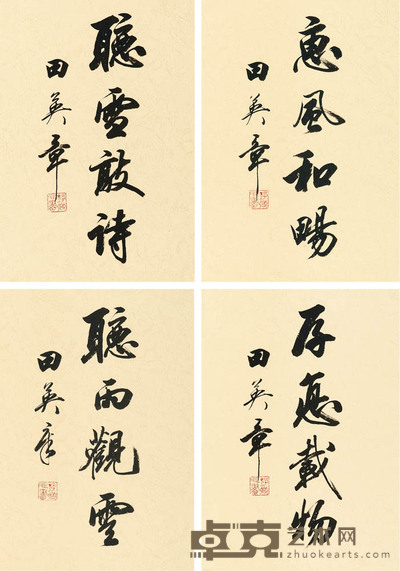 聽雪敲诗
田英章
惠風和暢
田英章
聽雨觀雲
田英章
厚德載物
田英章
卓克艺术网
zhuokearts.com